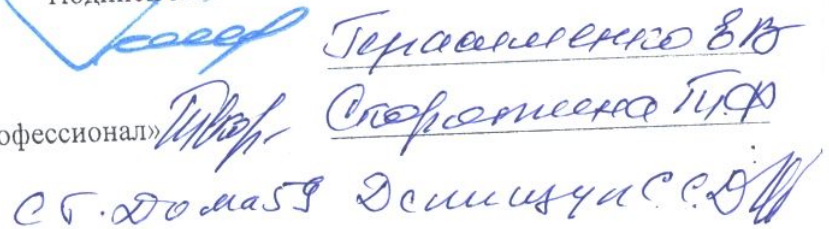 Герасименко ЕВ
офессионал» Сторожина Т.Ф
ст. дома 59 Денищук С.С.